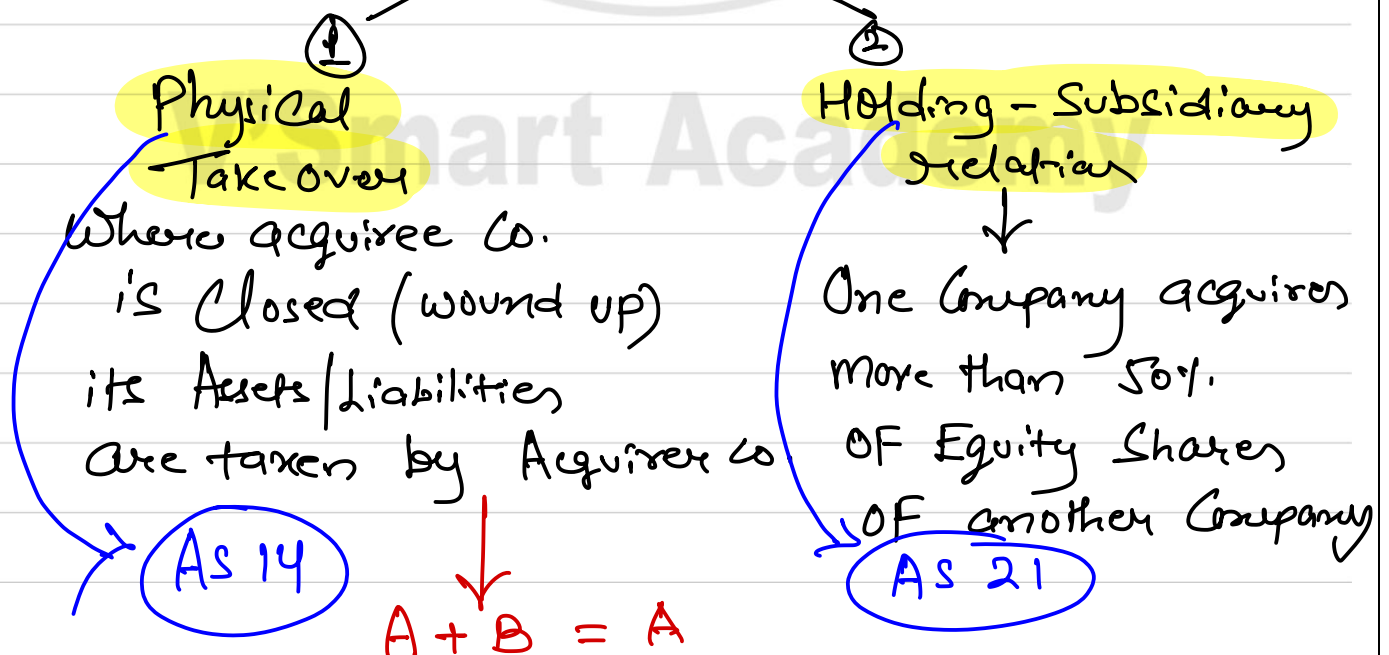 1
Physical
Takeover
Where acquiree Co.
is Closed (wound up)
its Assets/Liabilities
are taken by Acquirer co.
As 14
A + B = A
2
Holding - Subsidiary
relation
One Company acquires
more than 50%.
OF Equity Shares
OF another Company
As 21
Smart Academy